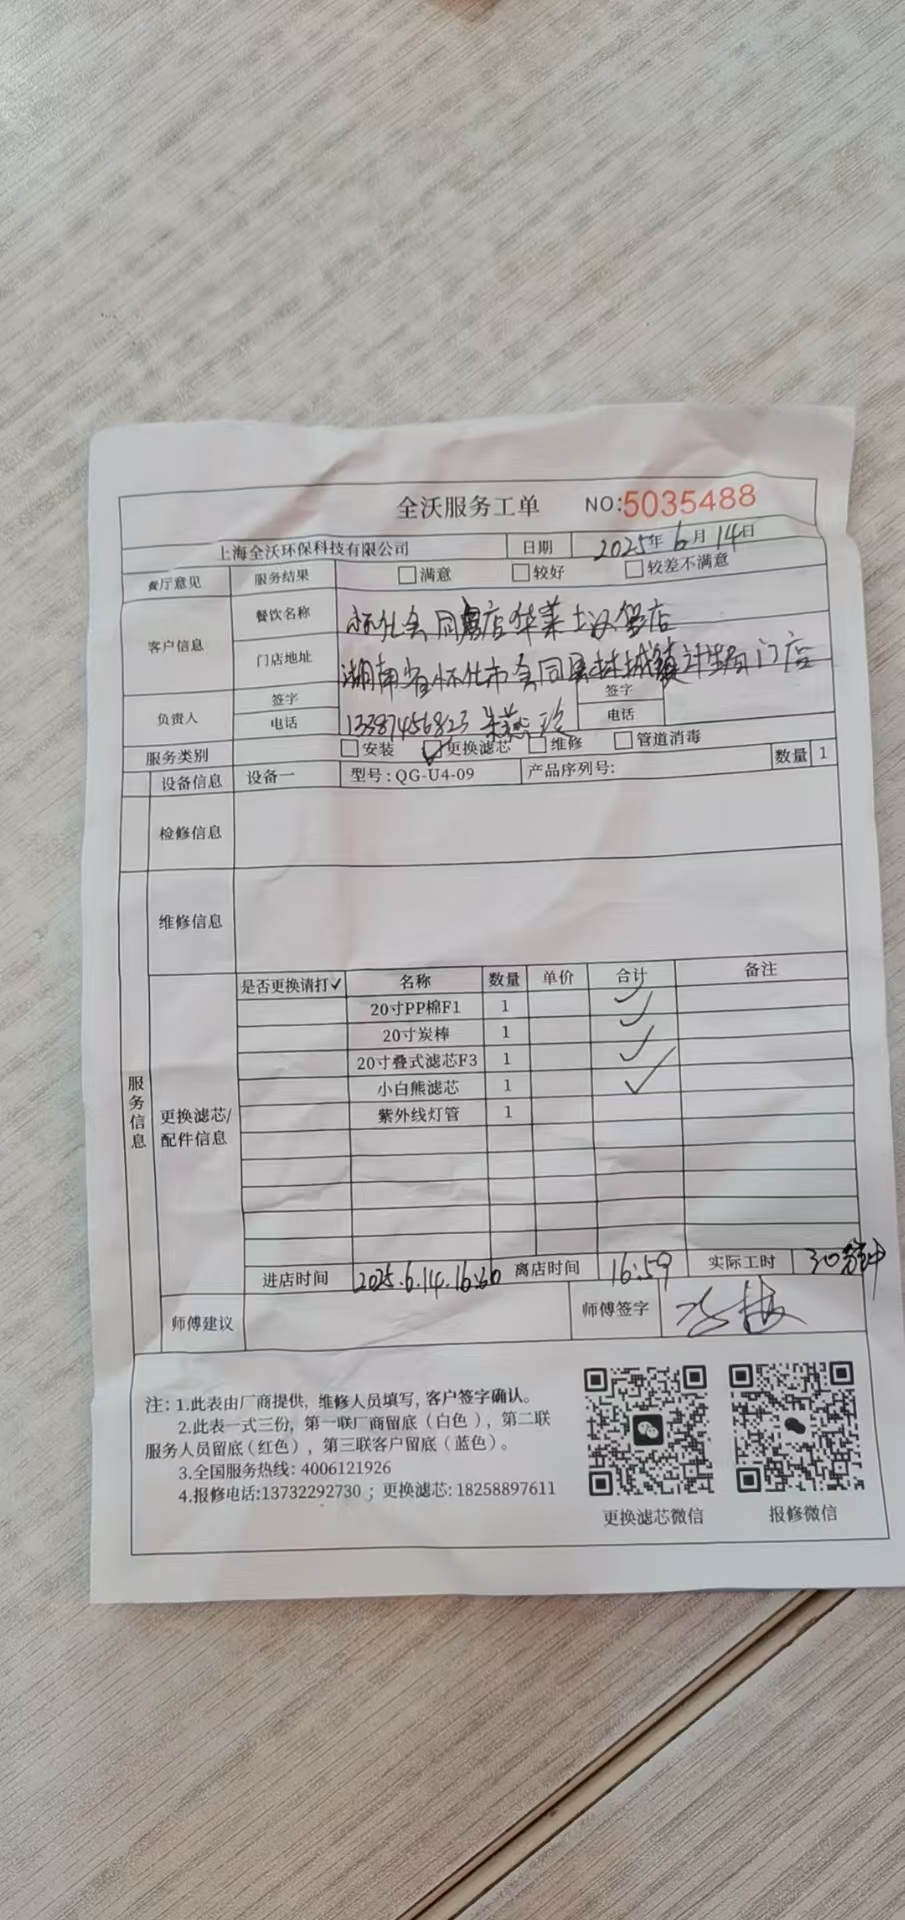 全沃服务工单 NO:5035488
上海全沃环保科技有限公司 日期 2025年6月14日
餐厅意见 服务结果 满意 较好 较差不满意
客户信息 餐饮名称 怀化会同店华莱士汉堡店
门店地址 湖南省怀化市会同县林城镇计生局门店
负责人 签字 签字
电话 13387456823 朱燕玲 电话
服务类别 安装 ✓更换滤芯 维修 管道消毒
设备信息 设备一 型号:QG-U4-09 产品序列号: 数量 1
检修信息
维修信息
服务信息
更换滤芯/配件信息
是否更换请打✓ 名称 数量 单价 合计 备注
20寸PP棉F1 1 ✓
20寸炭棒 1 ✓
20寸叠式滤芯F3 1 ✓
小白熊滤芯 1 ✓
紫外线灯管 1
进店时间 2025.6.14.16:30 离店时间 16:59 实际工时 30分钟
师傅建议 师傅签字
注: 1.此表由厂商提供, 维修人员填写, 客户签字确认。
2.此表一式三份, 第一联厂商留底(白色), 第二联
服务人员留底(红色), 第三联客户留底(蓝色)。
3.全国服务热线: 4006121926
4.报修电话:13732292730 ; 更换滤芯: 18258897611
更换滤芯微信 报修微信